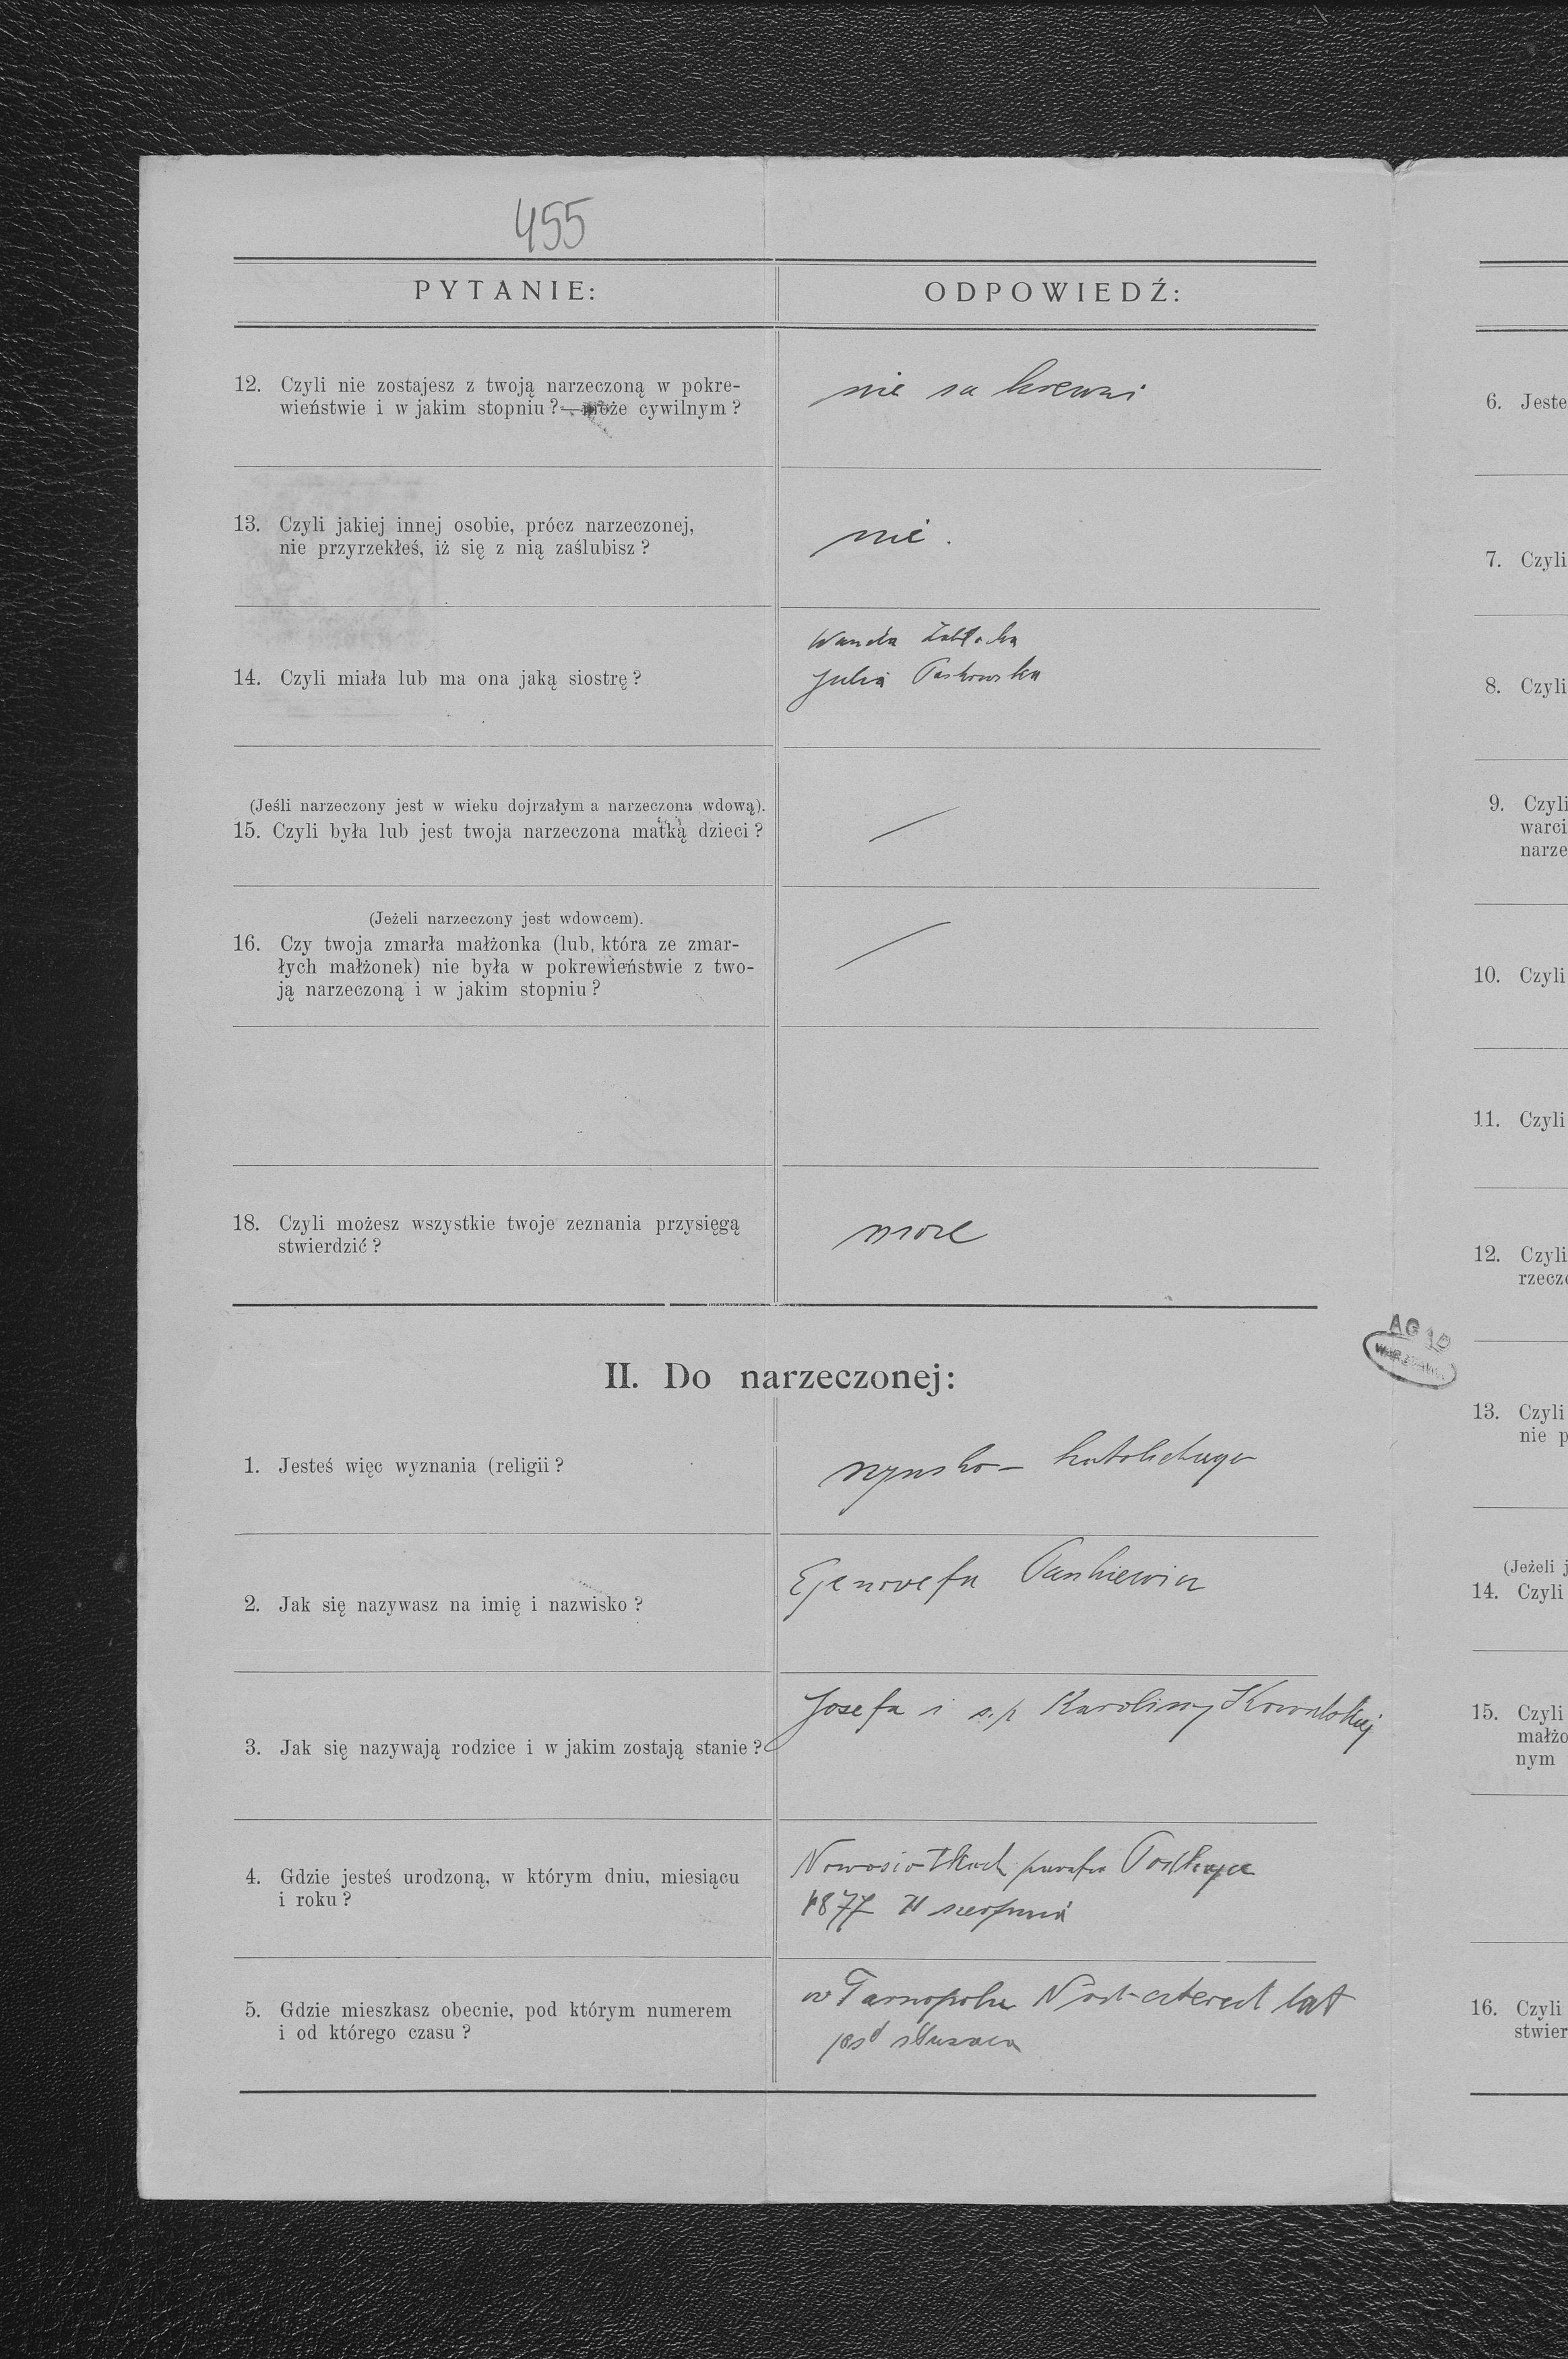 455
PYTANIE:
ODPOWIEDŹ:
12. Czyli nie zostajesz z twoją narzeczoną w pokre-
wieństwie i w jakim stopniu? — może cywilnym?
nie sa krewni
13. Czyli jakiej innej osobie, prócz narzeczonej,
nie przyrzekłeś, iż się z nią zaślubisz?
nie.
14. Czyli miała lub ma ona jaką siostrę?
Wanda
Julia
(Jeśli narzeczony jest w wieku dojrzałym a narzeczona wdową).
15. Czyli była lub jest twoja narzeczona matką dzieci?
(Jeżeli narzeczony jest wdowcem).
16. Czy twoja zmarła małżonka (lub, która ze zmar-
łych małżonek) nie była w pokrewieństwie z two-
ją narzeczoną i w jakim stopniu?
18. Czyli możesz wszystkie twoje zeznania przysięgą
stwierdzić?
może
II. Do narzeczonej:
1. Jesteś więc wyznania (religii?
rzymsko- katolickiego
2. Jak się nazywasz na imię i nazwisko?
3. Jak się nazywają rodzice i w jakim zostają stanie?
Josefa i s.p Karoliny Kowalskiej
4. Gdzie jesteś urodzoną, w którym dniu, miesiącu
i roku?
parafia Podhajce
1877 sierpnia
5. Gdzie mieszkasz obecnie, pod którym numerem
i od którego czasu?
w Tarnopolu od czterech lat
jest służaca
AGAD
WARSZAWA
6. Jeste
7. Czyli
8. Czyli
9. Czyli
warci
narze
10. Czyli
11. Czyli
12. Czyli
rzecz
13. Czyli
nie p
(Jeżeli j
14. Czyli
15. Czyli
małżo
nym
16. Czyli
stwier